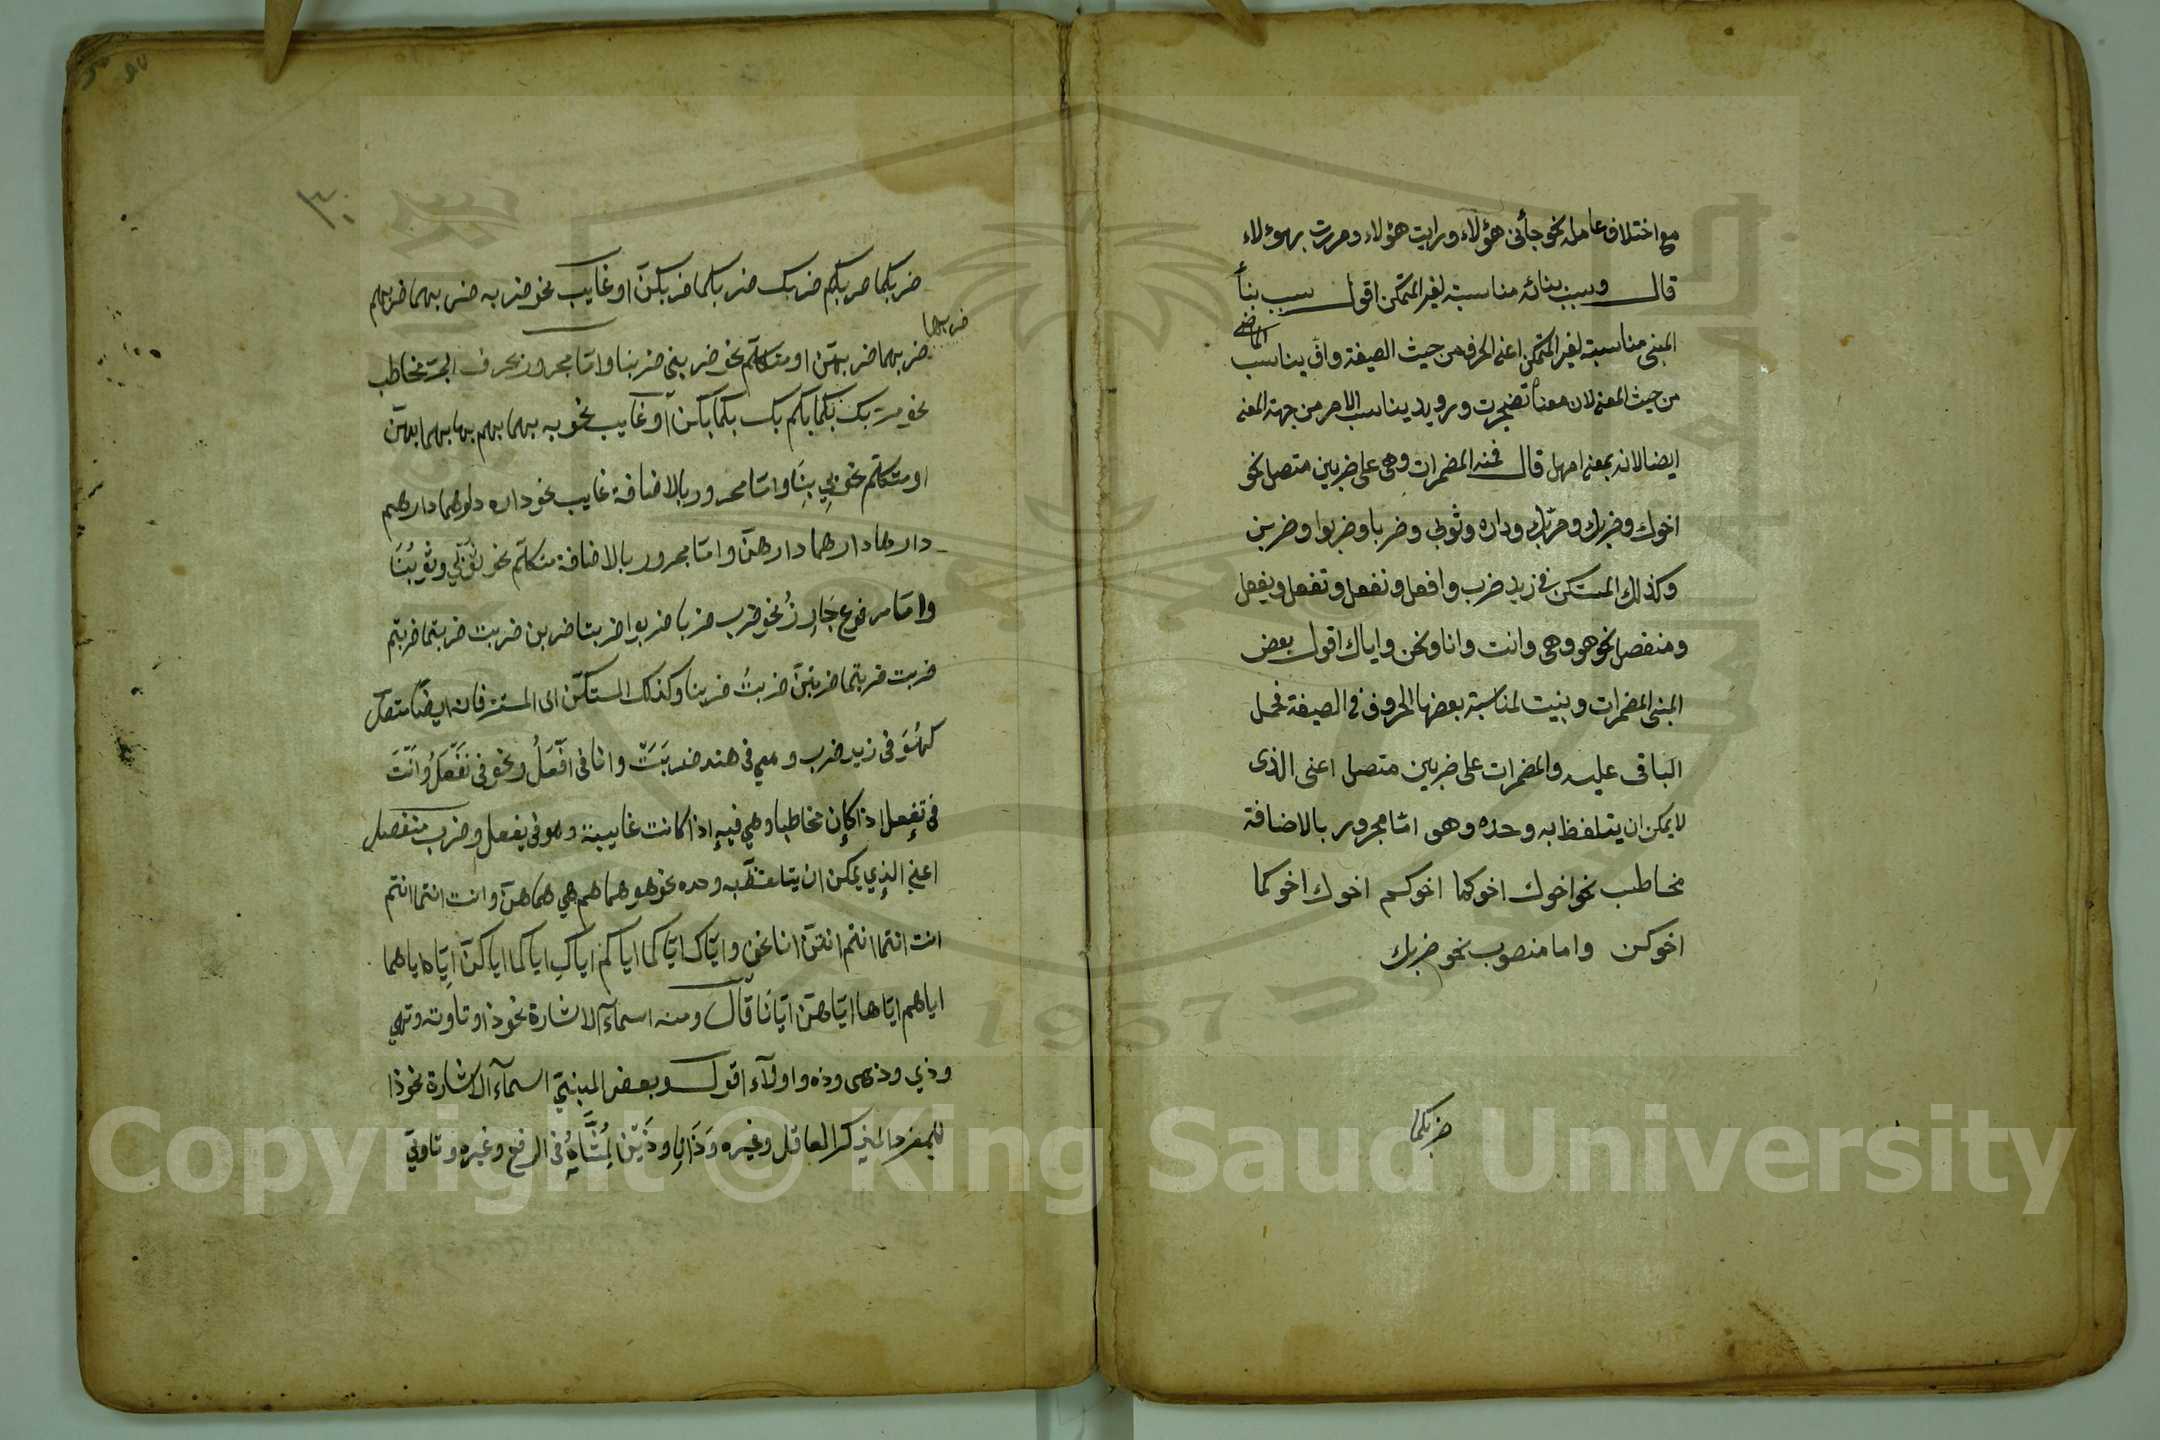 مع اختلاف عامله نحو جأنى هؤلآء ورايت هؤلاء ومررت بهؤلاء
قال وسبب بنائه مناسبته لغير المتمكن اقول سبب بنأ
المبنى مناسبته لغير المتمكن اعنى الحرف من حيث الصيغة واف يناسب الماضى
من حيث المعنى لان معناه تضجرت ورويد يناسب الامر من جهة المعنى
ايضا لانه بمعنى امهل قال فمنه المضمرات وهى على ضربين متصل نحو
اخوك وضربك ومربك وداره وثوبى وضربا وضربوا وضربن
وكذلك المستكن فى زيد ضرب وافعل ونفعل وتفعل ويفعل
ومنفصل نحو هو وهى وانت وانا ونحن واياك اقول بعض
المبنى المضمرات وبنيت لمناسبة بعضها الحروف فى الصيغة فحمل
الباقى عليه والمضمرات على ضربين متصل اعنى الذى
لا يمكن ان يتلفظ به وحده وهو امّا مجرور بالاضافة
مخاطب نحو اخوك اخوكما اخوكم اخوك اخوكما
اخوكن واما منصوب نحو ضربك
ضربكما
٣٠
ضربكما ضربكم ضربك ضربكما ضربكنّ او غايب نحو ضربه ضربهما ضربهم
ضربها
ضربهما ضربهنّ او متكلّم نحو ضربنى ضربنا وامّا مجرور بحرف الجرّ مخاطب
نحو مرت بك بكما بكم بك بكما بكنّ او غايب نحو به بهما بهم بها بهما بهنّ
او متكلّم نحو بي بِنَا وامّا مجرور بالاضافة غايب نحو داره دارهما دارهم
دارها دارهما دارهنّ وامّا مجرور بالاضافة متكلّم نحو ثوبي وثوبُنَا
وامّا مرفوع بَارِزٌ نحو ضرب ضربا ضربوا ضربتا ضربن ضربت ضربتما ضربتم
ضربت ضربتما ضربتنّ ضربتُ ضربنا وكذلك المستكنّ اى المستتر فانه ايضًا متصل
كهُوَ فى زيد ضرب وهي فى هند ضربَتْ وانا فى اَفْعَلُ ونحن فى نَفْعَلُ وَاَنْتَ
فى تفعل اذا كان مخاطبا وهي فيه اذا كانت غايبة وهو فى يفعل وضرب منفصل
اعنى الذي يمكن ان يتلفظ به وحده نحو هو هما هم هي هما هنّ وانت انتما انتم
انت انتما انتم انتنّ انا نحن وايّاك ايّاكما اياكم اياكِ اياكما اياكنّ ايّاه اياهما
اياهم ايّاها ايّاهنّ ايّانَا قَالَ ومنه اسمآء الاشارة نحو ذا وتا وته وتهي
وذي وذهى وذه واولآء اقول وبعض المبنيّ اسمآء الاشارة نحو ذا
للمفرد المذكر العاقل وغيره وَذَانِ وذَيْن لمُثَنَّاهُ فى الرفع وغيره وتا وتي
Copyright © King Saud University
1957